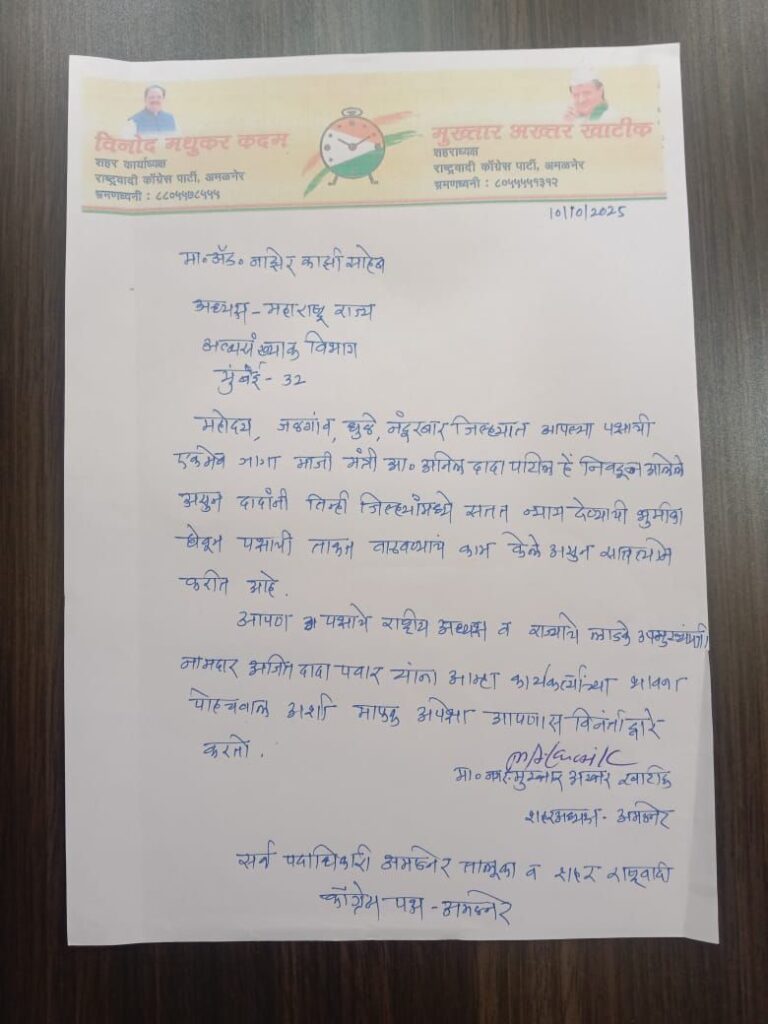 विनोद मधुकर कदम
शहर कार्याध्यक्ष
राष्ट्रवादी काँग्रेस पार्टी, अमळनेर
भ्रमणध्वनी : ८८०५५७८५५५
मुख्तार अख्तर खाटीक
शहराध्यक्ष
राष्ट्रवादी काँग्रेस पार्टी, अमळनेर
भ्रमणध्वनी : ८०५५५५१३१२
10/10/2025
मा. ॲड. नाझेर काझी साहेब
अध्यक्ष - महाराष्ट्र राज्य
अल्पसंख्याक विभाग
मुंबई - 32
महोदय, जळगांव, धुळे, नंदुरबार जिल्ह्यात आपल्या पक्षाची
एकमेव जागा माजी मंत्री आ. अनिल दादा पाटील हे निवडून आलेले
असुन दादांनी तिन्ही जिल्ह्यांमध्ये सतत न्याय देण्याची भुमीका
घेवून पक्षाची ताकत वाढवण्याचं काम केले असुन सातत्याने
करीत आहे.
आपण पक्षाचे राष्ट्रीय अध्यक्ष व राज्याचे लाडके उपमुख्यमंत्री
नामदार अजित दादा पवार यांना आम्हा कार्यकर्त्यांच्या भावना
पोहचवाल अशी माफक अपेक्षा आपणास विनंती द्वारे
करतो.
मा. मुख्तार अख्तर खाटीक
शहरअध्यक्ष - अमळनेर
सर्व पदाधिकारी अमळनेर तालूका व शहर राष्ट्रवादी
काँग्रेस पक्ष - अमळनेर